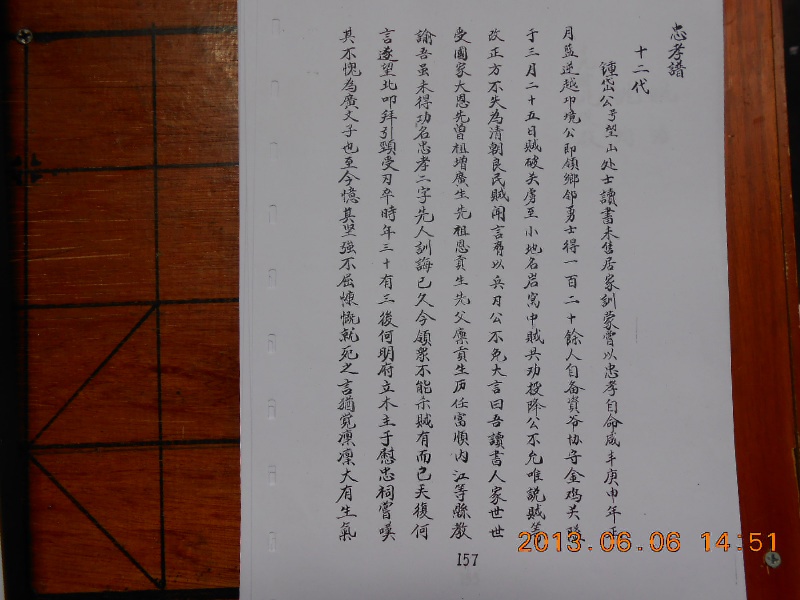 忠孝譜
十二代
鍾岱公号望山处士讀書未售居家訓蒙嘗以忠孝自命咸丰庚申年
月藍逆越邛境公即領鄉邻勇士得一百二十餘人自备資谷协守金鸡关
于三月二十五日贼破关虏至小地名岩窝中贼兵劝投降公不允唯説贼等
改正方不失为清朝良民贼闻言脅以兵刃公不免大言曰吾讀書人家世世
受國家大恩先曾祖增廣生先祖恩貢生先父廪貢生历任富順内江等縣教
諭吾虽未得功名忠孝二字先人訓誨已久今領衆不能示贼有而已天復何
言遂望北叩拜引頸受刃卒時年三十有三後何明府立木主于慰忠祠嘗嘆
其不愧為廣文子也至今憶其坚强不屈慷慨就死之言猶覚凛凛大有生氣
157
2013.06.06 14:51